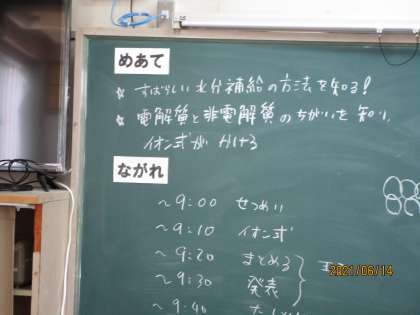 めあて
☆ すばらしい水分補給の方法を知る!
☆ 電解質と非電解質のちがいを知り、
イオン式がかける
ながれ
~9:00 せつめい
~9:10 イオン式
~9:20 まとめる
~9:30 発表
~9:40
2021/06/14